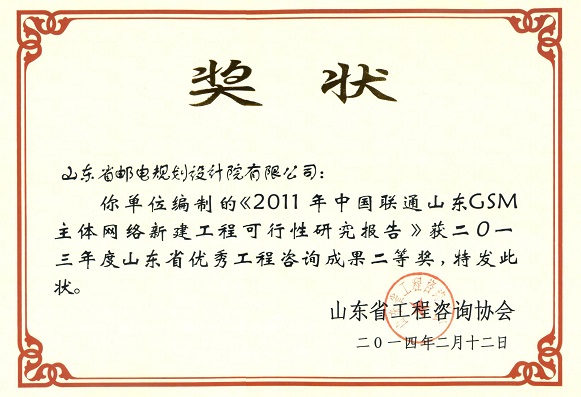 奖 状
山东省邮电规划设计院有限公司：
你单位编制的《2011年中国联通山东GSM
主体网络新建工程可行性研究报告》获二〇一
三年度山东省优秀工程咨询成果二等奖，特发此
状。
山东省工程咨询协会
二〇一四年二月十二日